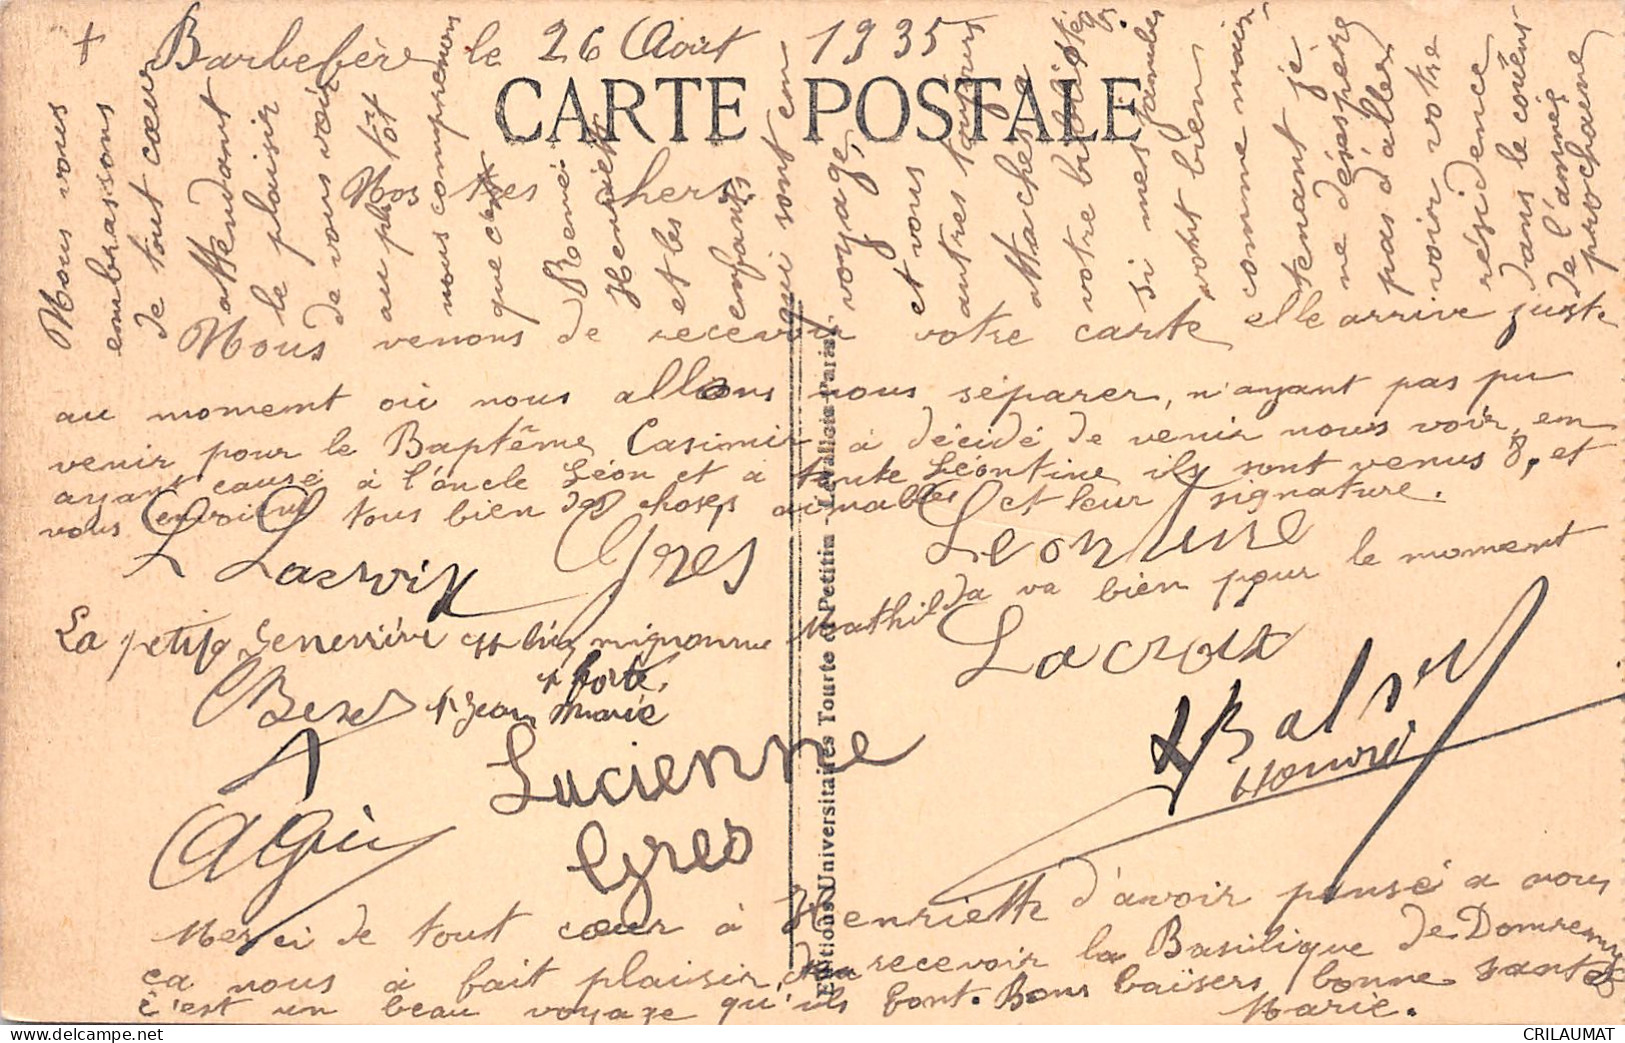 + Barbefère le 26 Août 1935
CARTE POSTALE
Nos très chers.
Nous venons de recevoir votre carte elle arrive juste
au moment où nous allions nous séparer, n'ayant pas pu
venir pour le Baptême Casimir à décidé de venir nous voir, en
ayant causé à l'oncle Léon et à tante Léontine ils sont venus 8, et
vous envoient tous bien des choses aimables et leur signature.
L Lacroix Gres Leontine
La petite Genevièvre est bien mignonne Mathilda va bien pour le moment
Lacroix
+ forte,
Jean Marie
Lucienne
Gres
Balsiu
Honoré
Merci de tout cœur à Henriette d'avoir pensé a nous
ça nous à fait plaisir recevoir la Basilique de Domremy
c'est un beau voyage qu'ils font. Bons baisers bonne santé
Marie.
Nous vous
embrassons
de tout cœur
attendant
le plaisir
de vous voir
au plus tôt
nous comprenons
que c'est
Roemei
Henriette
et les
enfants
qui sont en
voyage,
et vous
autres toujours
attachés a
votre
si mes jambes
vont bien
comme main
tenant je
ne désespère
pas d'aller
voir votre
résidence
dans le courent
de l'année
prochaine
Editions Universitaires Tourte et Petitin - Levallois-Paris.
CRILAUMAT